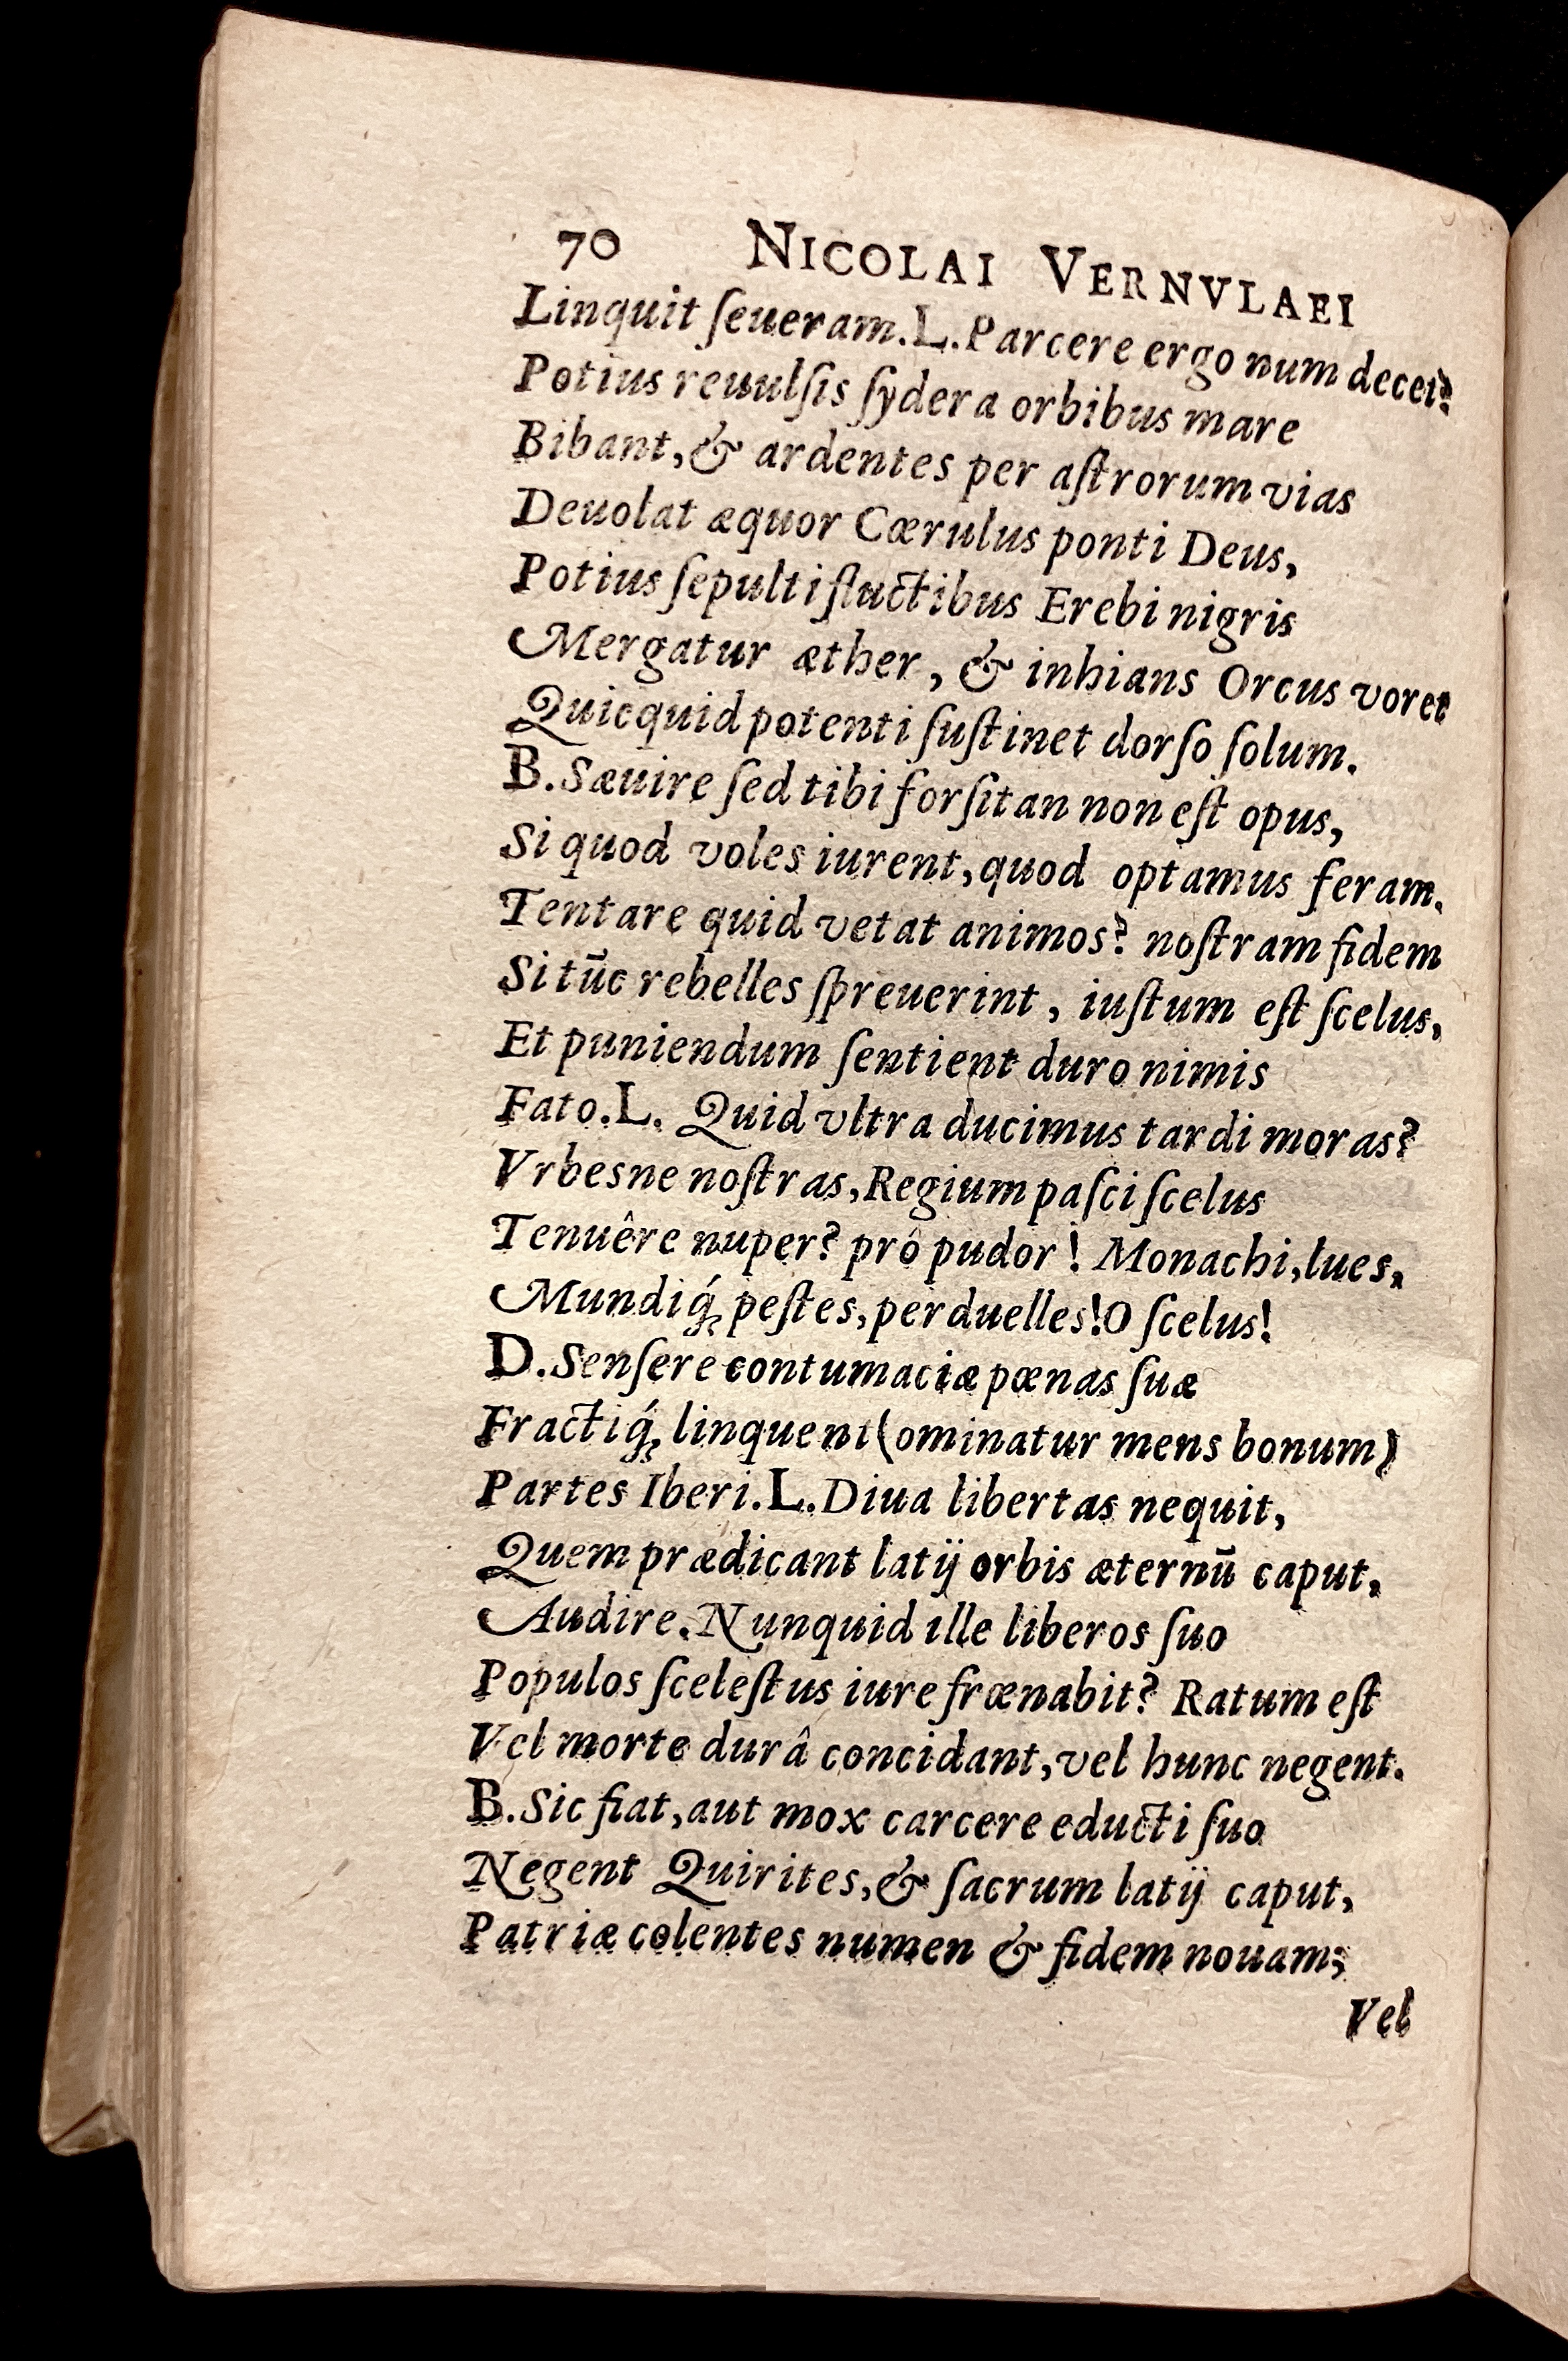 70 NICOLAI VERNVLAEI
Linquit ſeueram. L. Parcere ergo num decet?
Potius reuulſis ſydera orbibus mare
Bibant, & ardentes per aſtrorum vias
Deuolat æquor Cœrulus ponti Deus,
Potius ſepulti fluctibus Erebi nigris
Mergatur æther, & inhians Orcus voret
Quicquid potenti ſuſtinet dorſo ſolum.
B. Sæuire ſed tibi forſitan non eſt opus,
Si quod voles iurent, quod optamus feram.
Tentare quid vetat animos? noſtram fidem
Si tūc rebelles ſpreuerint, iuſtum eſt ſcelus,
Et puniendum ſentient duro nimis
Fato. L. Quid vltra ducimus tardi moras?
Vrbesne noſtras, Regium paſci ſcelus
Tenuêre nuper? prô pudor! Monachi, lues,
Mundiq́; peſtes, perduelles! O ſcelus!
D. Senſere contumaciæ pœnas ſuæ
Fractiq́; linquent (ominatur mens bonum)
Partes Iberi. L. Diua libertas nequit,
Quem prædicant latij orbis æternū caput,
Audire. Nunquid ille liberos ſuo
Populos ſceleſtus iure frœnabit? Ratum eſt
Vel morte durâ concidant, vel hunc negent.
B. Sic fiat, aut mox carcere educti ſuo
Negent Quirites, & ſacrum latij caput,
Patriæ colentes numen & fidem nouam;
Vel